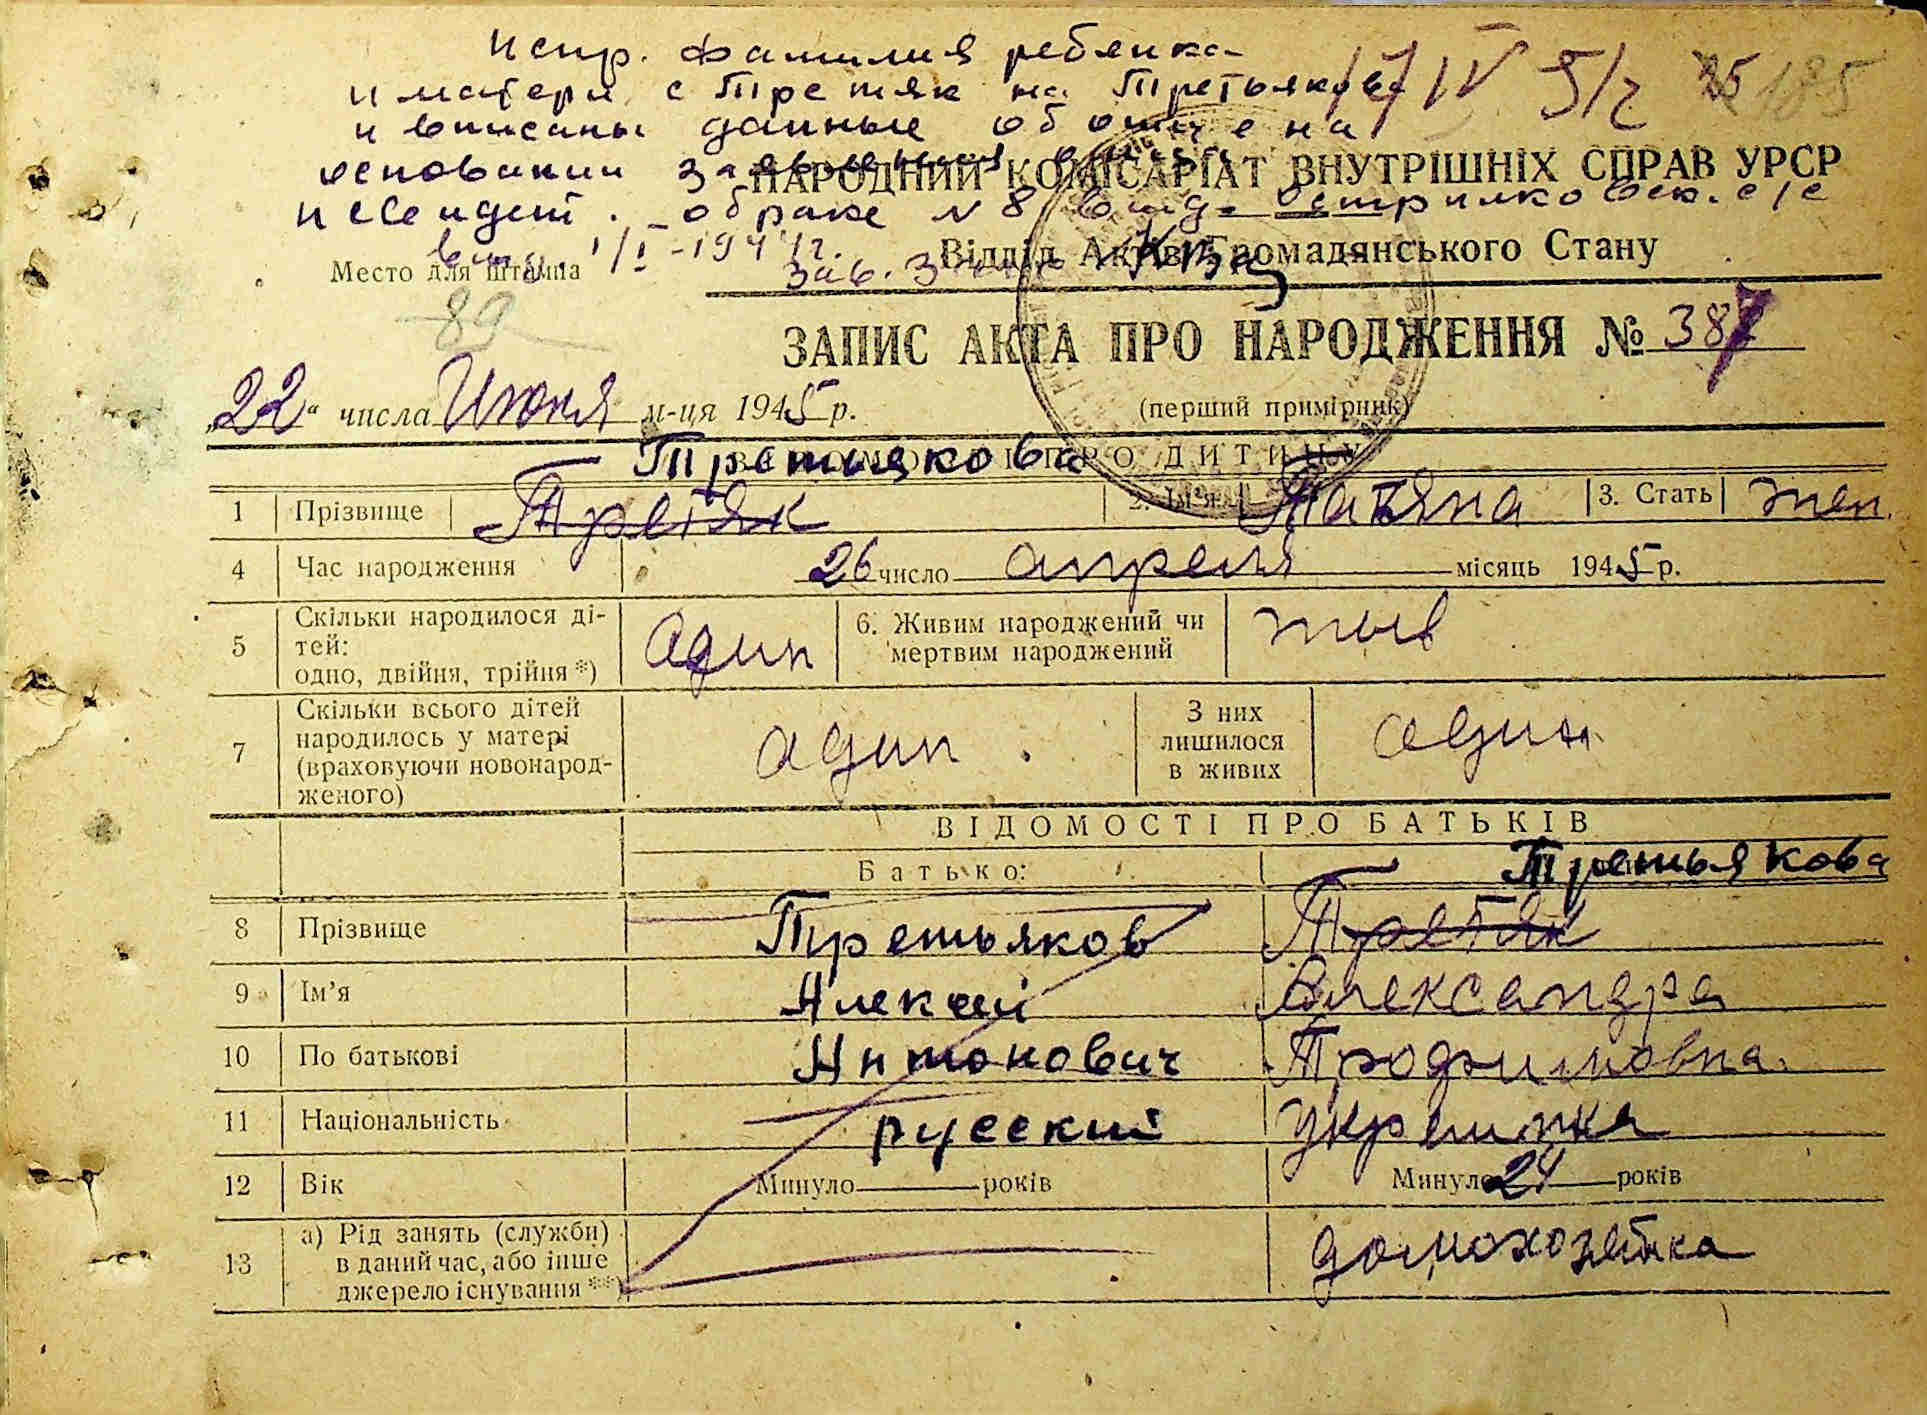 Испр. фамилия ребенка
и матери с Третяк на Третьякова
и вписаны данные об отце на
основании заявления
17 IV 5/2 35 185
НАРОДНИЙ КОМІСАРІАТ ВНУТРІШНІХ СПРАВ УРСР
и свидет. о браке N 8 выд.
выд. 1/I-1944 г.
Зав.
Відділ Актів Громадянського Стану
Место для штампа
89
ЗАПИС АКТА ПРО НАРОДЖЕННЯ № 387
„22“ числа Июня м-ця 1945 р.
(перший примірник)
ВІДОМОСТІ ПРО ДИТИНУ
Третьякова
1 Прізвище Третяк 2. Ім'я Татяна 3. Стать жен.
4 Час народження 26 число апреля місяць 1945 р.
5 Скільки народилося ді-
тей:
одно, двійня, трійня *) адин
6. Живим народжений чи
мертвим народжений жыв
7 Скільки всього дітей
народилось у матері
(враховуючи новонарод-
женого) адин
З них
лишилося
в живих адин
ВІДОМОСТІ ПРО БАТЬКІВ
Батько:
Третьякова
8 Прізвище Третьяков Третяк
9 Ім'я Алексей Александра
10 По батькові Антонович Трофимовна.
11 Національність русский украинка
12 Вік Минуло років Минуло 24 років
13 а) Рід занять (служби)
в даний час, або інше
джерело існування **) домохозяйка